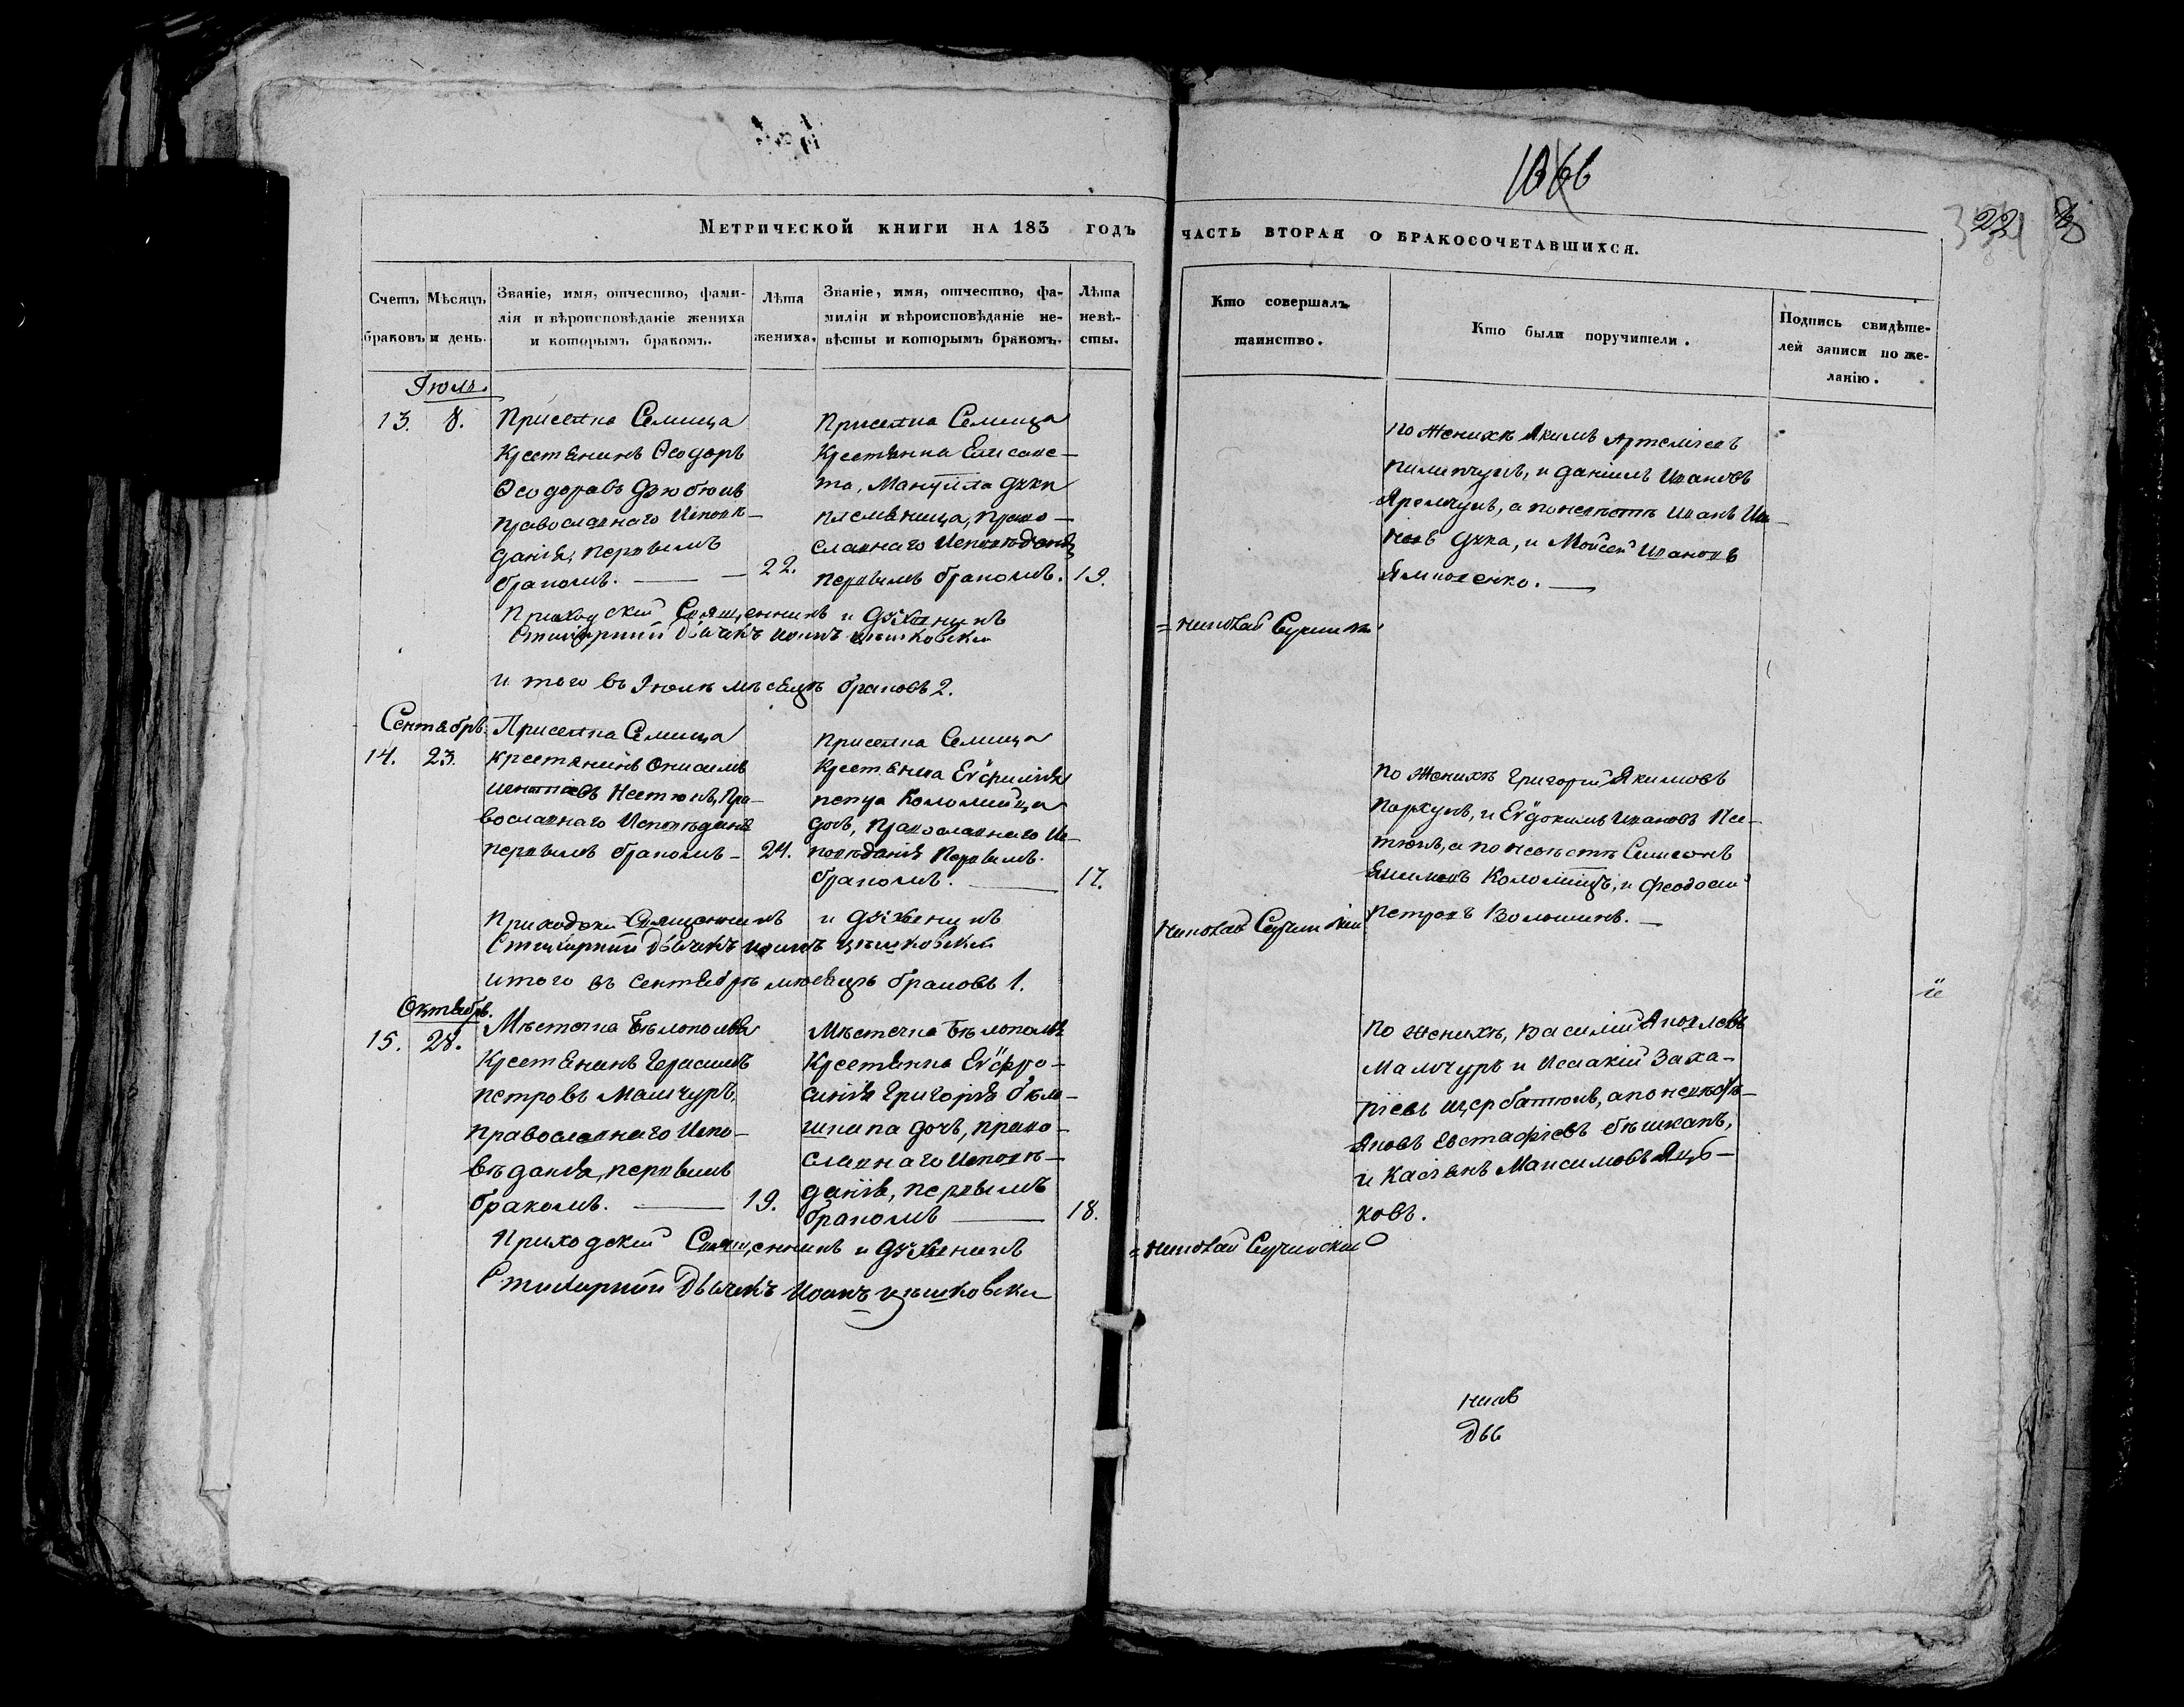 22
Метрической книги на 183 годъ
часть вторая о бракосочетавшихся.
Счетъ браковъ
Мѣсяцъ и день.
Званіе, имя, отчество, фами-
лія и вѣроисповѣданіе жениха
и которымъ бракомъ.
Лѣта
жениха.
Званіе, имя, отчество, фа-
милія и вѣроисповѣданіе не-
вѣсты и которымъ бракомъ.
Лѣта
невѣ-
сты.
Кто совершалъ
таинство.
Кто были поручители.
Подпись свидѣте-
лей записи по же-
ланію.
Іюль
13. 8.
Приселка Семища
Крестянинъ Ѳеодоръ
Ѳеодоровъ
православнаго Исповѣ-
данія, первымъ
бракомъ. — 22.
Приселка Семища
Крестянка Елисаве-
та, Мануила Дяка
племѣница, право-
славнаго Исповѣданія
первымъ бракомъ. 19.
по Женихѣ Якимъ Артеміевъ
Пилипчукъ, и Даніилъ Ивановъ
Яремчукъ, а по невѣстѣ Иванъ Ива-
новъ Дяка, и Мойсей Ивановъ
Ямполенко. —
Приходскій Священникъ и Духовникъ
= Николай Сучинскій
Стихарный Дьячекъ Иоанъ
и того въ Іюлѣ мѣсяцѣ браковъ 2.
Сентябрь
14. 23.
Приселка Семища
Крестянинъ Онисимъ
Игнатіевъ Нестюкъ, Пра-
вославнаго Исповѣданія
первымъ бракомъ — 24.
Приселка Семища
Крестянка Евфимія
Коломійца
дочь, Православнаго Ис-
повѣданія Первымъ
бракомъ. — 17.
по Женихѣ Григорій Якимовъ
Пархукъ, и Евдокимъ Ивановъ Нес-
тюкъ, а по невѣстѣ Симеонъ
Якимовъ Коломіецъ, и Феодосій
Петровъ Волошинъ. —
Приходскій Священникъ и Духовникъ
Николай Сучинскій
Стихарный Дьячекъ Иоанъ
итого въ Сентябрѣ мѣсяцѣ браковъ 1.
Октябрь.
15. 28.
Мѣстечка Бѣлополья
Крестянинъ Герасимъ
Петровъ Мамчуръ,
православнаго Испо-
вѣданія, первымъ
бракомъ. — 19.
Мѣстечка Бѣлополья
Крестянка Евфро-
синія Григорія
дочь, право-
славнаго Исповѣ-
данія, первымъ
бракомъ — 18.
по Женихѣ, Василій Яковлевъ
Мамчуръ и Исаакій Заха-
ріевъ Щербатюкъ, а по невѣстѣ-
Яковъ Евстафіевъ
и Касіянъ Максимовъ Яцб-
ковъ.
Приходскій Священникъ и Духовникъ
= Николай Сучинскій
Стихарный Дьячекъ Иоанъ